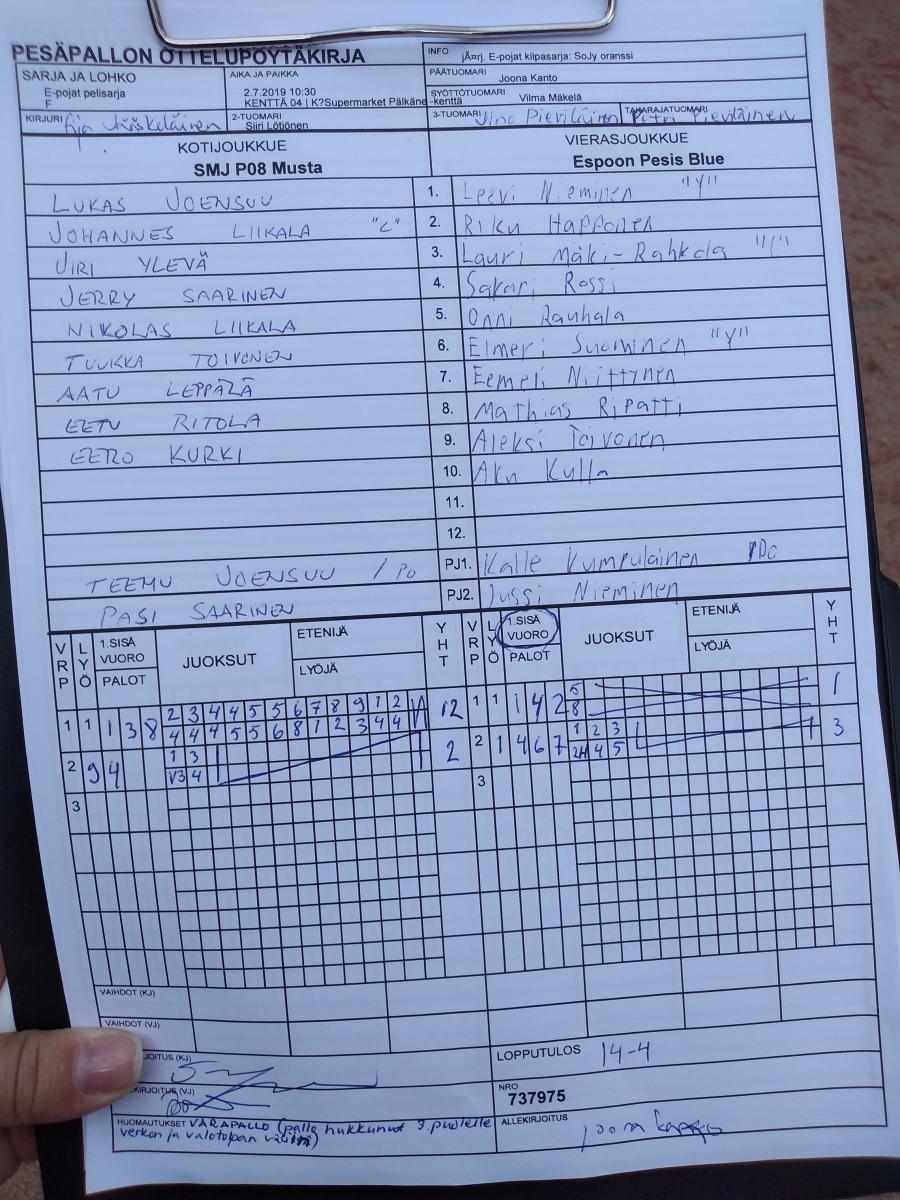 PESÄPALLON OTTELUPÖYTÄKIRJA
INFO jÃ¤rj. E-pojat kilpasarja: SoJy oranssi
SARJA JA LOHKO
E-pojat pelisarja
F
AIKA JA PAIKKA
2.7.2019 10:30
KENTTÄ 04 | K?Supermarket Pälkäne -kenttä
PÄÄTUOMARI Joona Kanto
SYÖTTÖTUOMARI Vilma Mäkelä
KIRJURI Jääskeläinen
2-TUOMARI
Siiri Lötiönen
3-TUOMARI Jino Pieviläinen
TAKARAJATUOMARI Petri Pieviläinen
KOTIJOUKKUE
SMJ P08 Musta
VIERASJOUKKUE
Espoon Pesis Blue
LUKAS JOENSUU 1. Leevi Nieminen "y"
JOHANNES LIIKALA "C" 2. Riku Happonen
JIRI YLEVÄ 3. Lauri Mäki-Rahkola "C"
JERRY SAARINEN 4. Sakari Rossi
NIKOLAS LIIKALA 5. Onni Rauhala
TUUKKA TOIVONEN 6. Elmeri Suominen "y"
AATU LEPPÄLÄ 7. Eemeli Niittynen
EETU RITOLA 8. Mathias Ripatti
EERO KURKI 9. Aleksi Toivonen
10. Aku Kulla
11.
12.
TEEMU JOENSUU / PO PJ1. Kalle Kumpulainen /Po
PASI SAARINEN PJ2. Jussi Nieminen
VRP LYÖ 1.SISÄ VUORO PALOT JUOKSUT ETENIJÄ LYÖJÄ YHT VRP LYÖ 1.SISÄ VUORO PALOT JUOKSUT ETENIJÄ LYÖJÄ YHT
1 1 1 3 8 2 3 4 4 5 5 6 7 8 9 1 2 12 1 1 1 4 2 5 1
4 4 4 5 5 6 8 1 2 3 4 4 8
2 9 4 1 3 2 2 1 4 6 7 1 2 3 3
V3 4 2H 4 5
3 3
VAIHDOT (KJ)
VAIHDOT (VJ)
JOITUS (KJ)
LOPPUTULOS 14-4
KIRJOITUS (VJ)
NRO
737975
HUOMAUTUKSET VARAPALLO (pallo hukkunut 3. puolelle
verkon ja valotolpan väliin)
ALLEKIRJOITUS
Joona Kanto